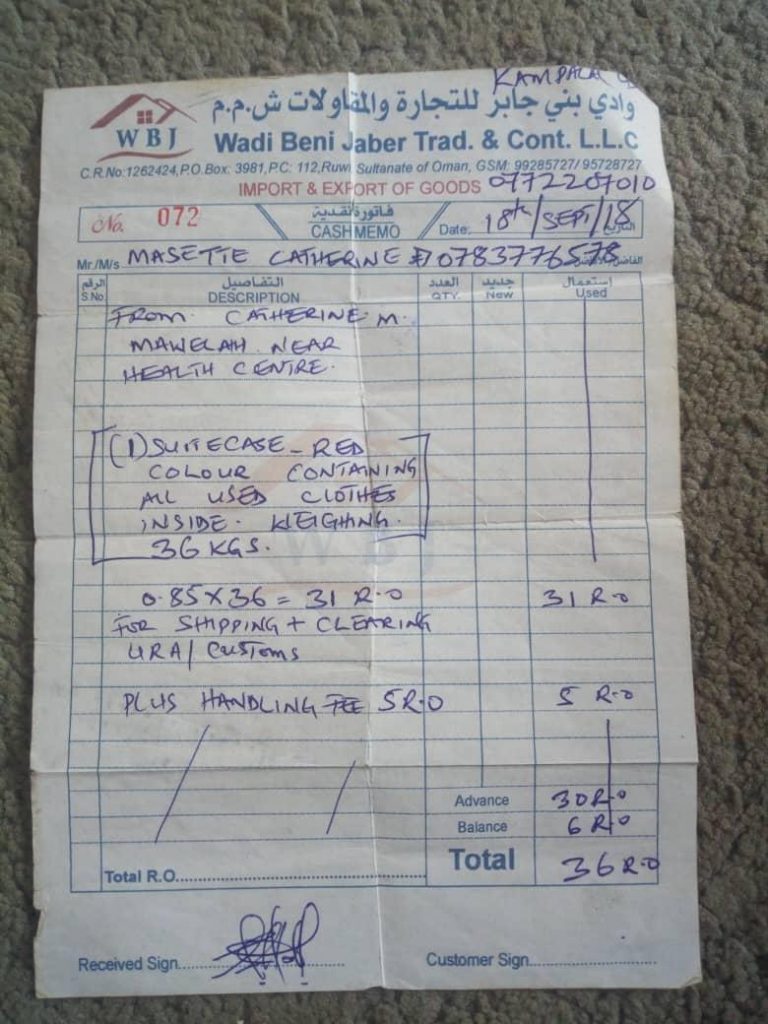 KAMPALA
وادي بني جابر للتجارة والمقاولات ش.م.م
WBJ
Wadi Beni Jaber Trad. & Cont. L.L.C
C.R.No:1262424,P.O.Box: 3981,P.C: 112,Ruwi, Sultanate of Oman, GSM: 99285727/ 95728727
IMPORT & EXPORT OF GOODS 0772207010
No. 072
فاتورة نقدية
CASHMEMO
Date: 18th/SEPT/18 التاريخ
Mr./M/s. MASETTE CATHERINE # 0783776578
الرقم التفاصيل العدد جديد إستعمال
S.No DESCRIPTION QTY. New Used
FROM. CATHERINE M.
MAWELAH NEAR
HEALTH CENTRE.
(1) SUITECASE - RED
COLOUR CONTAINING
ALL USED CLOTHES
INSIDE. WEIGHING.
36 KGS.
WBJ
0.85 X 36 = 31 R.O 31 R.O
FOR SHIPPING + CLEARING
URA/ CUSTOMS
PLUS HANDLING FEE 5 R.O 5 R.O
Advance 30 R.O
Balance 6 R.O
Total 36 R.O
Total R.O.
Received Sign.
Customer Sign.